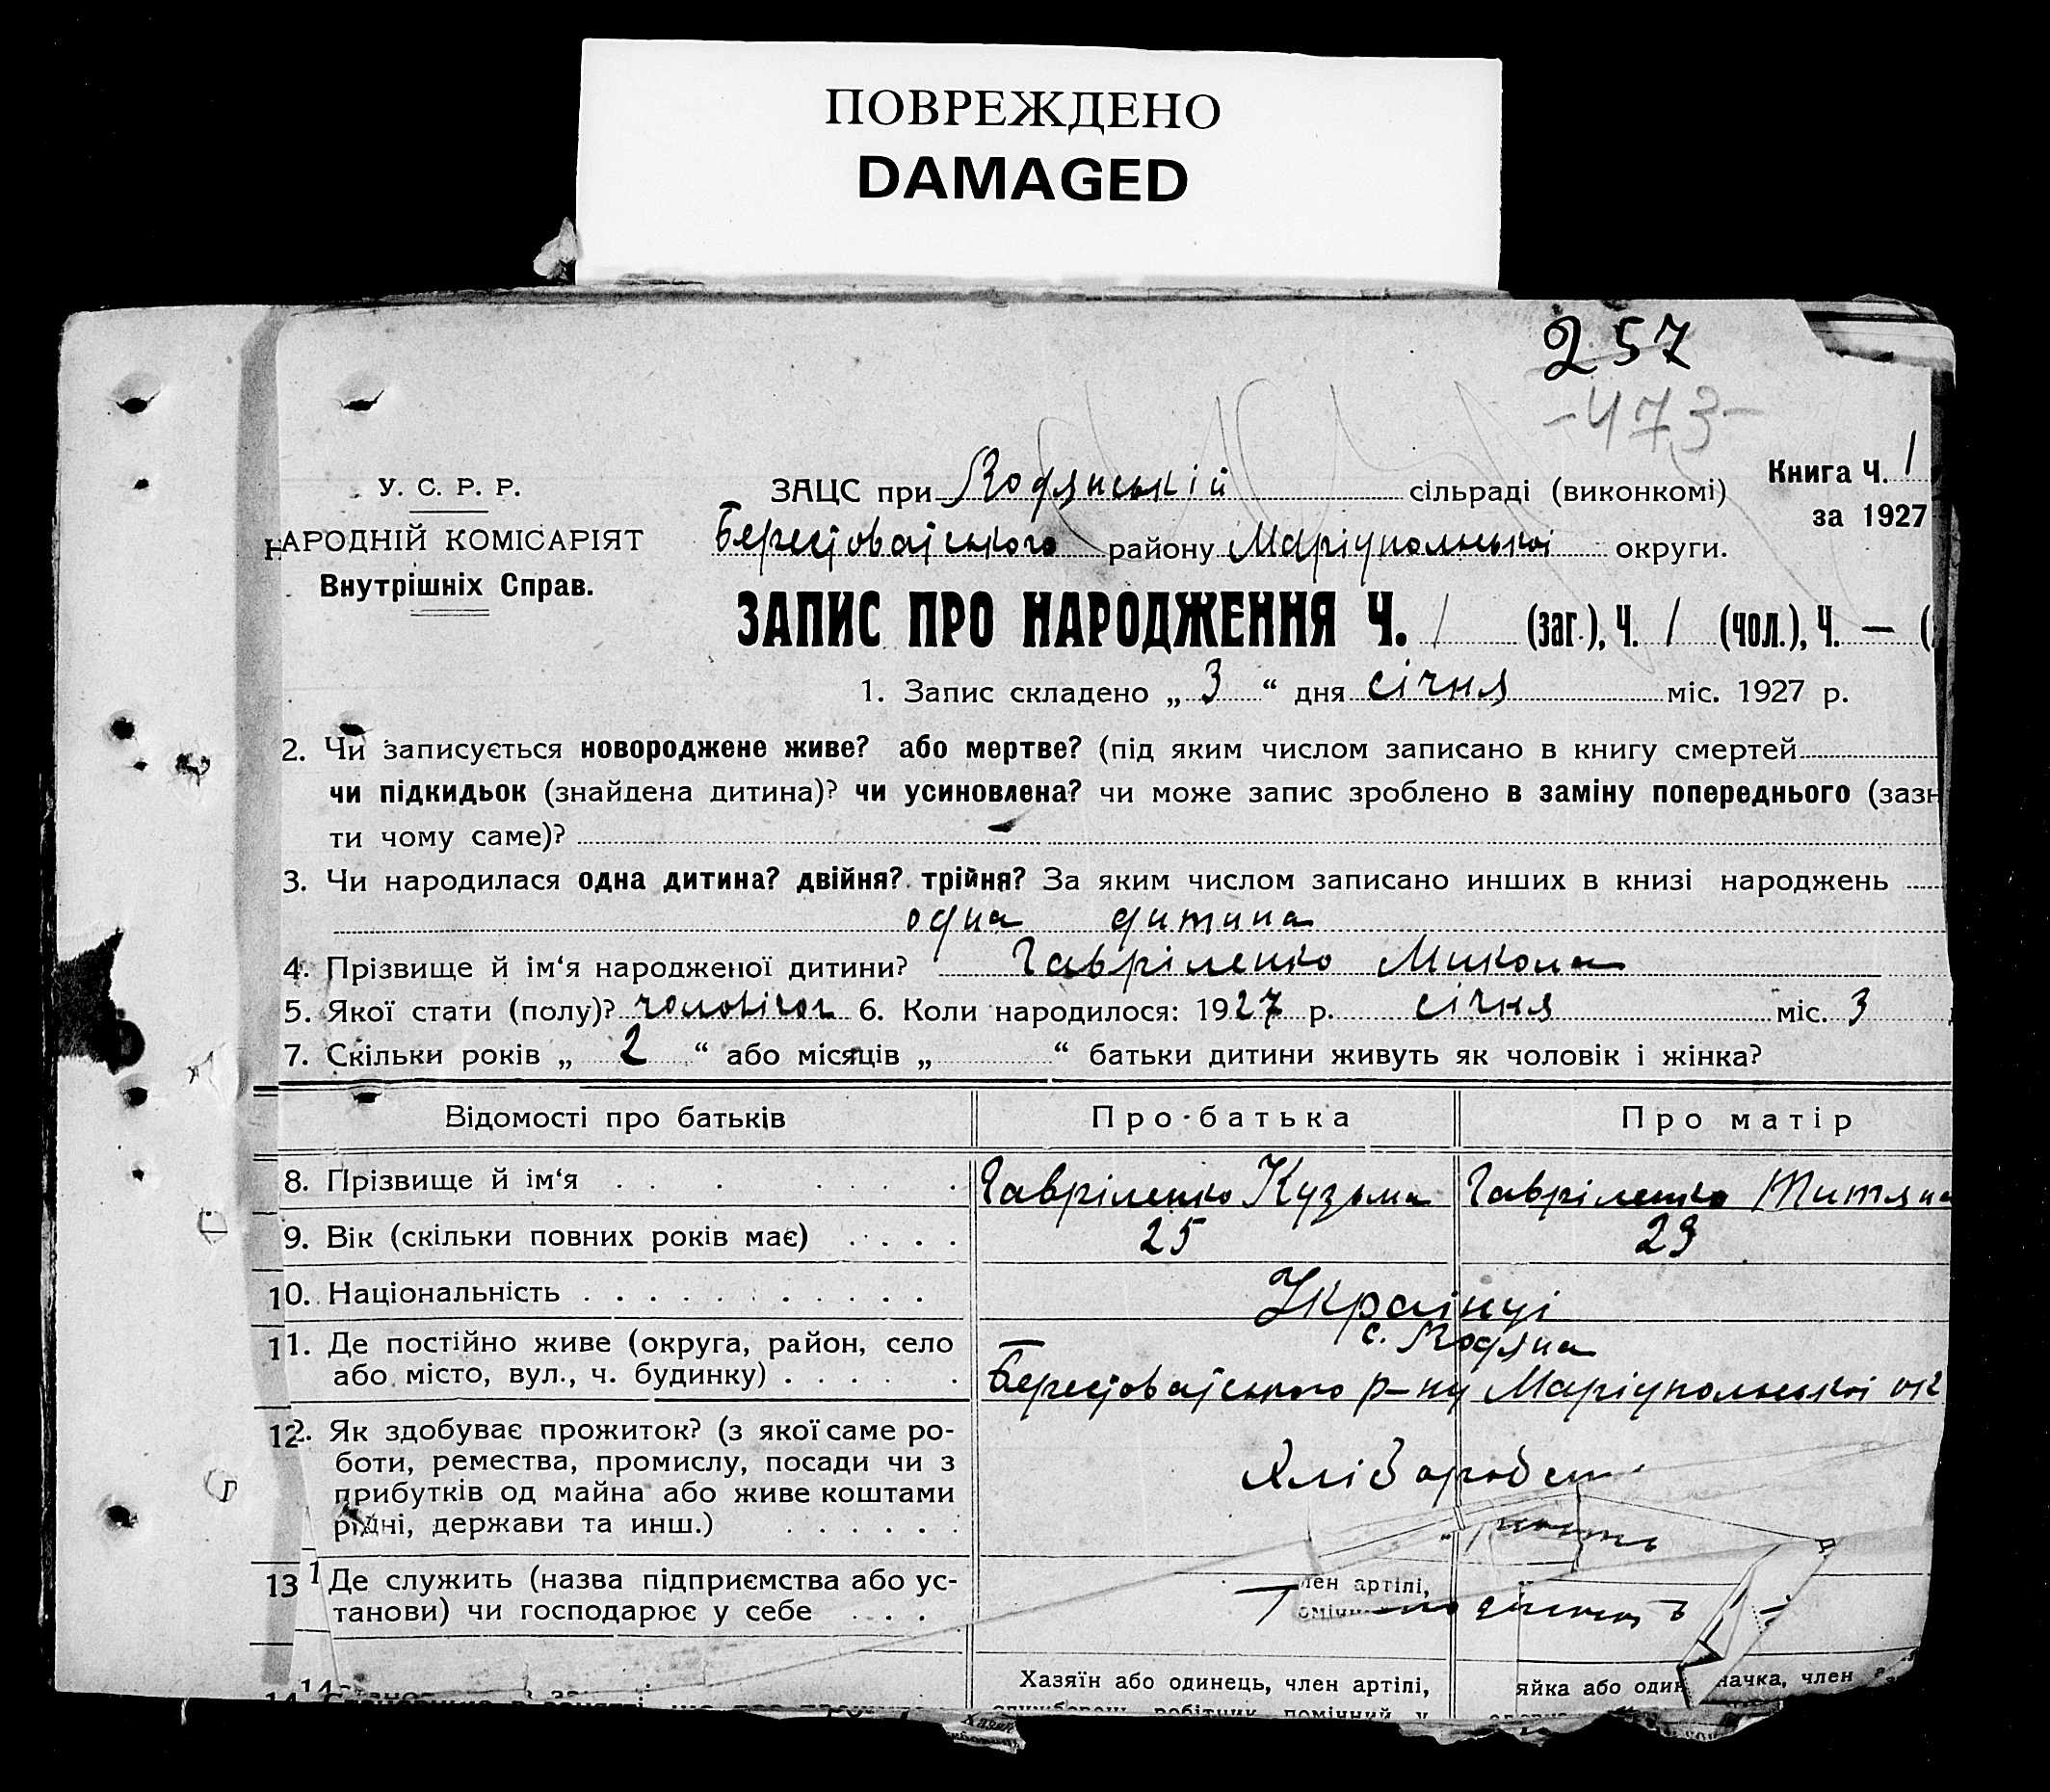 ПОВРЕЖДЕНО
DAMAGED
257
-473-
У. С. Р. Р.
НАРОДНІЙ КОМІСАРІЯТ
Внутрішніх Справ.
Книга Ч. 1
за 1927
ЗАЦС при Кодянській сільраді (виконкомі)
Берестоватського району Маріупольської округи.
ЗАПИС ПРО НАРОДЖЕННЯ Ч. 1 (заг.), Ч. 1 (чол.), Ч. — (
1. Запис складено „ 3 “ дня січня міс. 1927 р.
2. Чи записується новороджене живе? або мертве? (під яким числом записано в книгу смертей
чи підкидьок (знайдена дитина)? чи усиновлена? чи може запис зроблено в заміну попереднього (зазн
ти чому саме)?
3. Чи народилася одна дитина? двійня? трійня? За яким числом записано инших в книзі народжень
одна дитина
4. Прізвище й ім‘я народженої дитини? Гавріленко Микола
5. Якої стати (полу)? чоловічої 6. Коли народилося: 1927 р. січня міс. 3
7. Скільки років „ 2 “ або місяців „ “ батьки дитини живуть як чоловік і жінка?
Відомості про батьків Про батька Про матір
8. Прізвище й ім‘я Гавріленко Кузьма Гавріленко Титяна
9. Вік (скільки повних років має) 25 23
10. Національність Українці
11. Де постійно живе (округа, район, село с. Кодяна
або місто, вул., ч. будинку) Берестоватського р-ну Маріупольської ок
12. Як здобуває прожиток? (з якої саме ро-
боти, ремества, промислу, посади чи з Хлібороби
прибутків од майна або живе коштами
рідні, держави та инш.)
13 Де служить (назва підприємства або ус- лен артілі,
танови) чи господарює у себе
14
Хазяїн або одинець, член артілі, яйка або один начка, член
робітник, помічний у